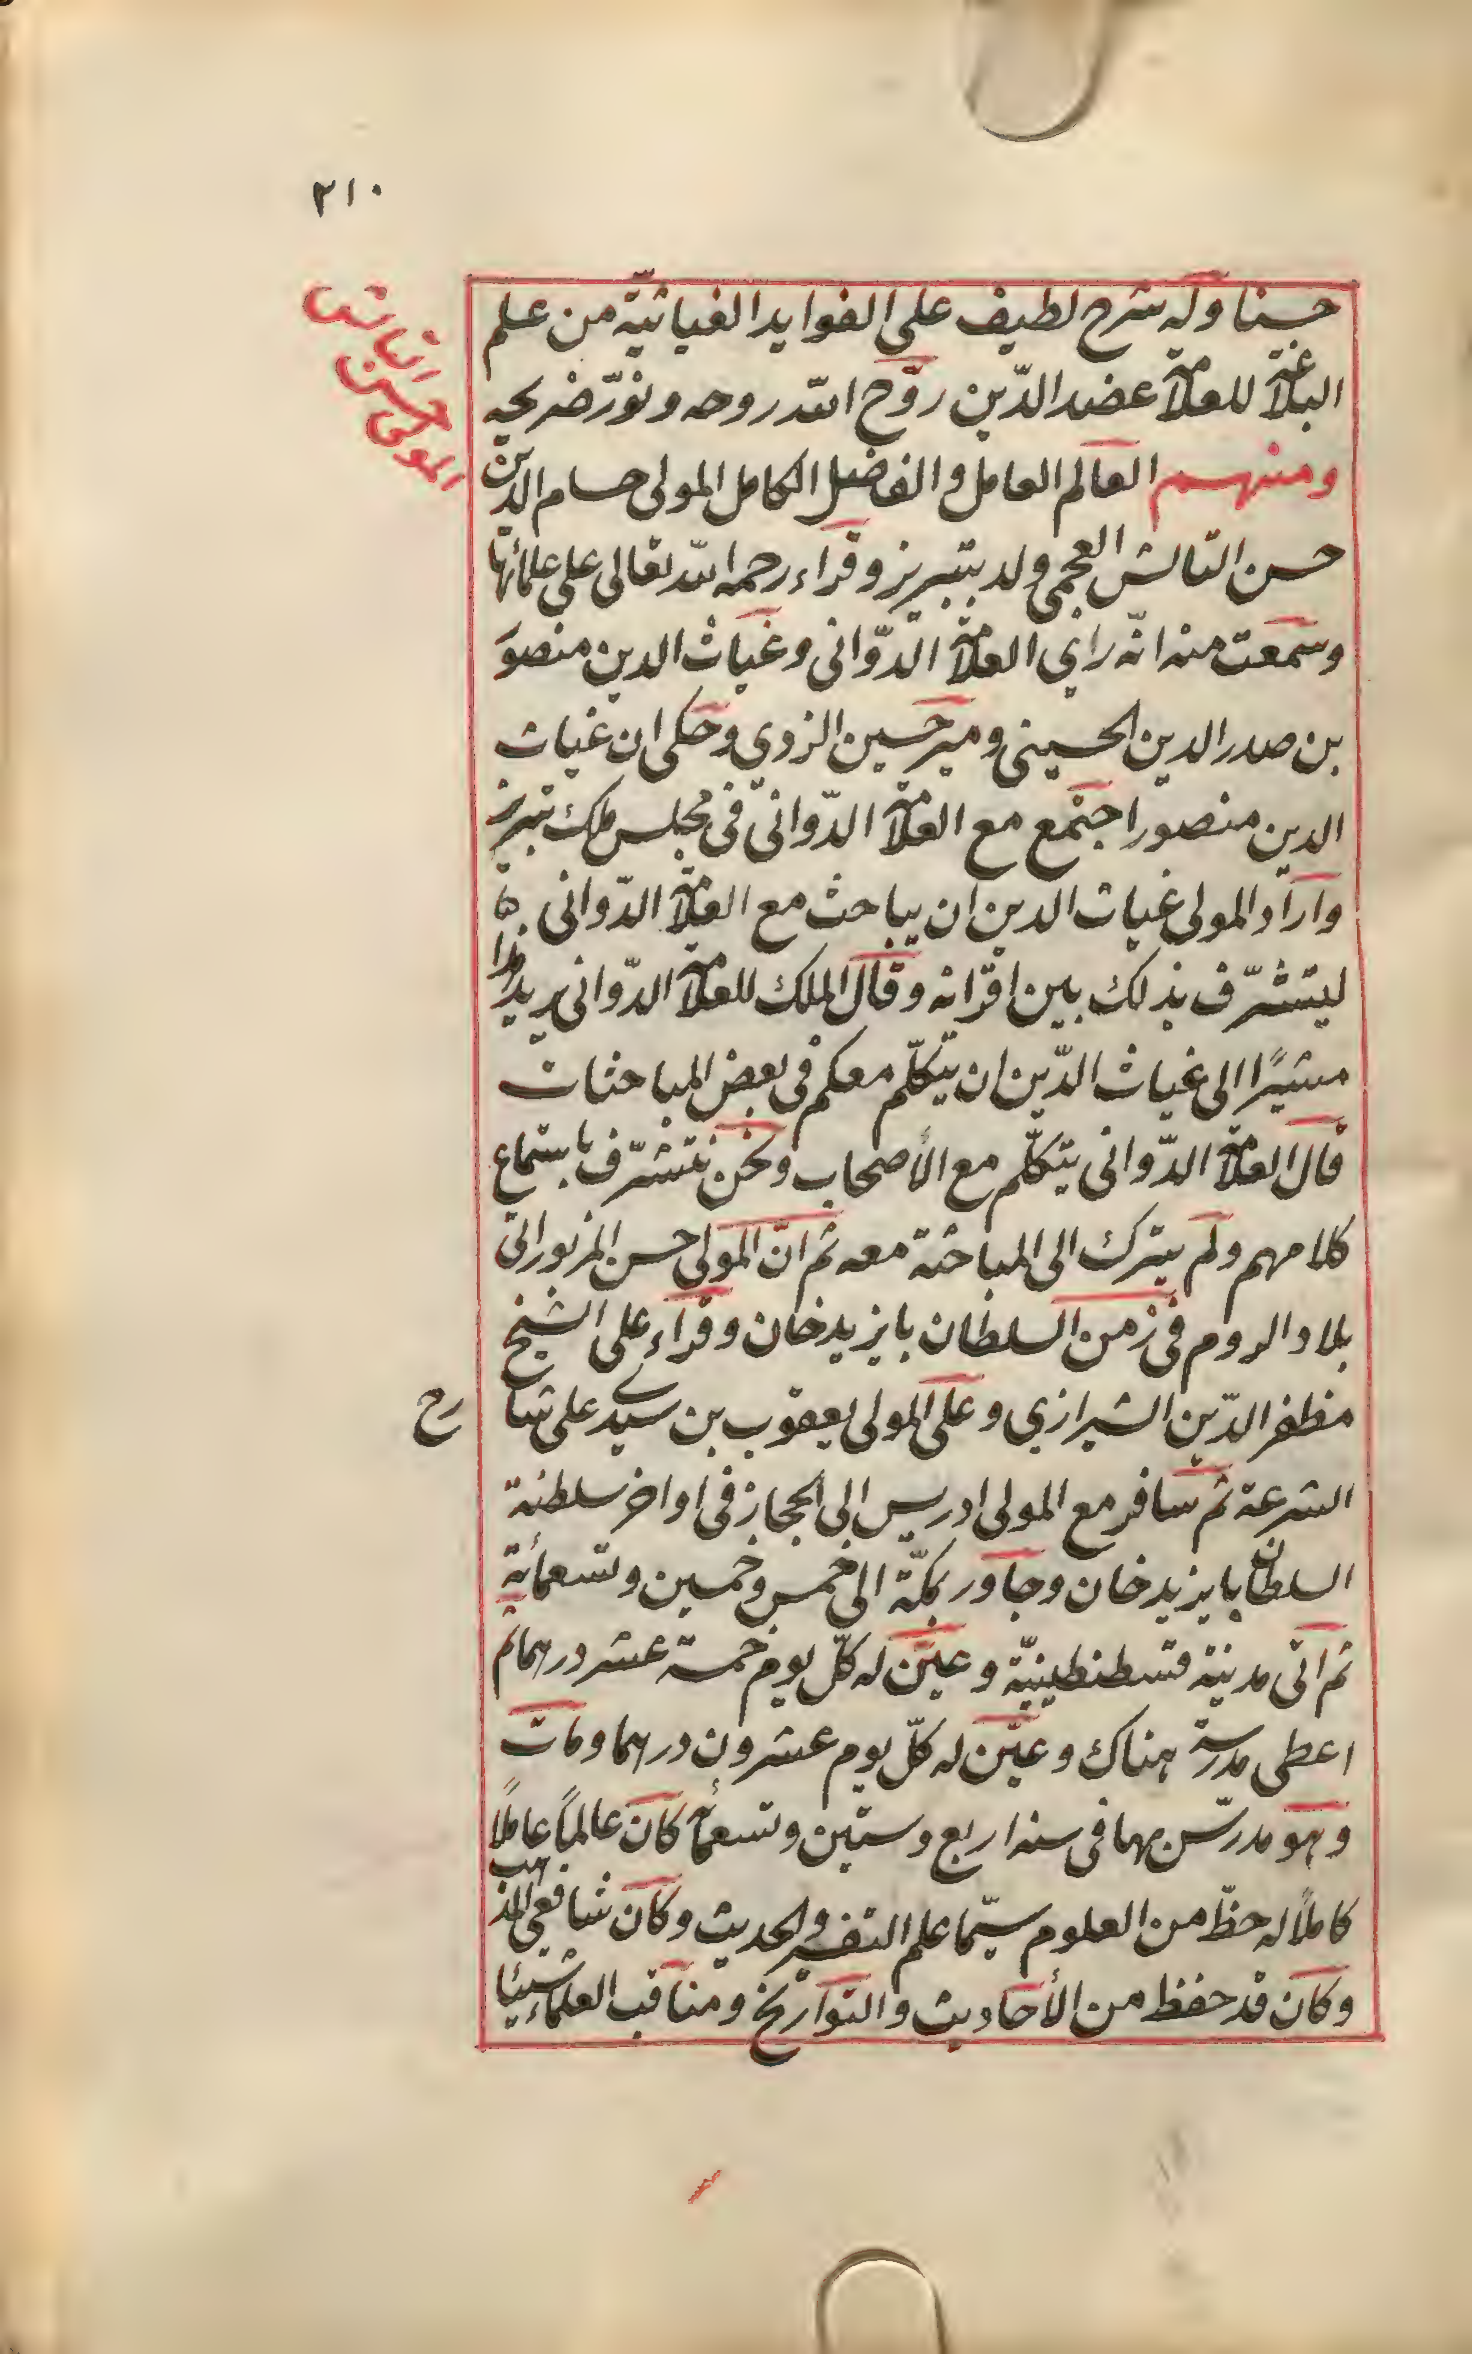 ٢١٠
المولى حسن التالشى
حسنا وله شرح لطيف على الفوايد الغياثيّة من علم
البلاغة للعلامة عضد الدّين روّح الله روحه ونوّر ضريحه
ومنهم العالم العامل والفاضل الكامل المولى حسام الدين
حسن التالشى العجمى ولد بتبريز وقراء رحمه الله تعالى على علمائها
وسمعت منه انّه راى العلامة الدّوّانى وغياث الدين منصور
بن صدر الدين الحسينى ومير حسين اليزدي وحكى ان غياث
الدين منصور اجتمع مع العلامة الدّوانىّ فى مجلس ملك تبريز
واراد المولى غياث الدين ان يباحث مع العلامة الدّوانى
ليتشرّف بذلك بين اقرانه وقال الملك للعلامة الدّوانى يريد هذا
مشيرًا الى غياث الدّين ان يتكلّم معكم فى بعض المباحثات
قال العلامة الدّوانى يتكلّم مع الأصحاب ونحن نتشرّف باستماع
كلامهم ولم يترك الى المباحثة معه ثم انّ المولى حسن المزبور اتى
بلاد الروم فى زمن السلطان بايزيدخان وقراء على الشيخ
مظفر الدّين الشيرازي وعلى المولى يعقوب بن سيدى على شا
رح
الشرعة ثم سافر مع المولى ادريس الى الحجاز فى اواخر سلطنة
السلطان بايزيدخان وجاور بمكّة الى خمس وخمسين وتسعمأية
ثم اتى مدينة قسطنطينيّة وعيّن له كلّ يوم خمسة عشر درهما ثم
اعطى مدرسة هناك وعيّن له كلّ يوم عشرون درهما ومات
وهو مدرّس بها فى سنه اربع وستّين وتسعمأة كان عالماً عاملًا
كاملًا له حظّ من العلوم سيّما علم التفسير والحديث وكان شافعى المذهب
وكان قد حفظ من الأحاديث والتواريخ ومناقب العلماء شيئا